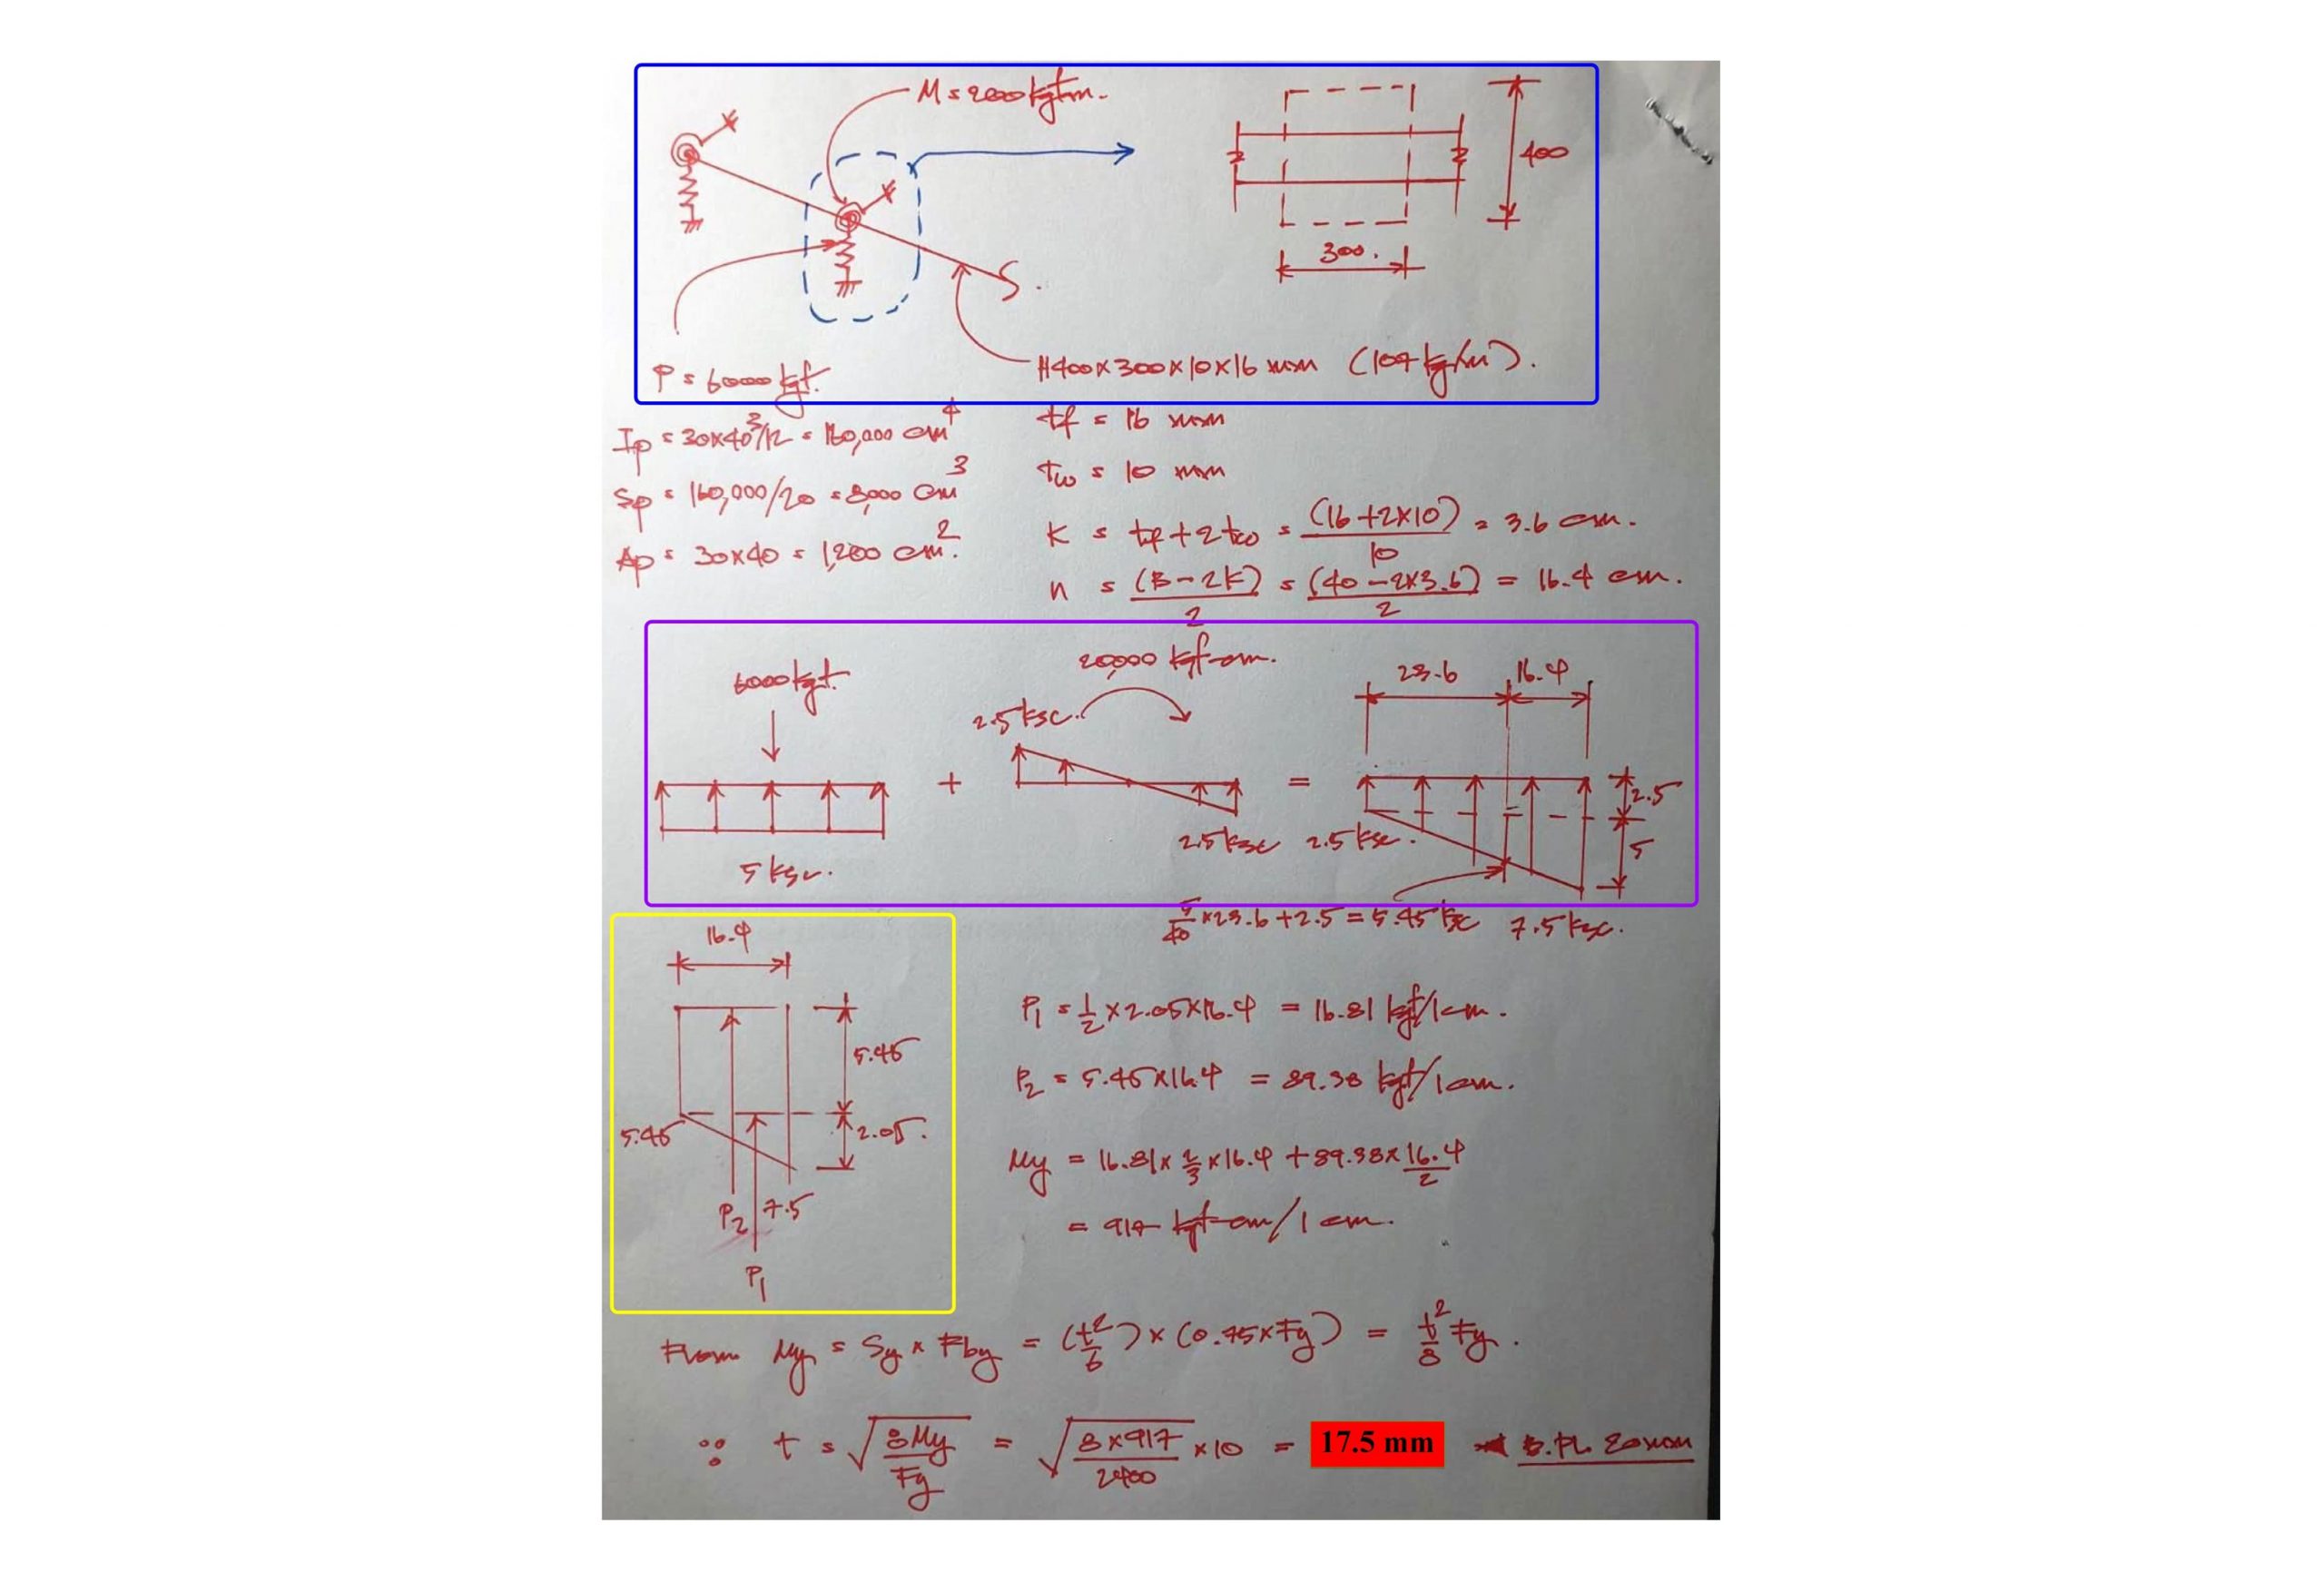 M = 200 kgf-m.
400
300.
P = 6000 kgf.
H400x300x10x16 mm (107 kg/m).
Ip = 30x40³/12 = 160,000 cm⁴
Sp = 160,000/20 = 8,000 cm³
Ap = 30x40 = 1,200 cm².
tf = 16 mm
tw = 10 mm
K = tf+2tw = (16+2x10)/10 = 3.6 cm.
n = (B-2K)/2 = (40-2x3.6)/2 = 16.4 cm.
6000 kgf.
5 ksc.
+
20,000 kgf-cm.
2.5 ksc.
2.5 ksc
=
23.6
16.4
2.5
5
2.5 ksc.
5/40 x23.6+2.5 = 5.45 ksc
7.5 ksc.
16.4
5.45
2.05.
5.45
P2
7.5
P1
P1 = 1/2 x2.05x16.4 = 16.81 kgf/1cm.
P2 = 5.45x16.4 = 89.38 kgf/1cm.
My = 16.81x 2/3 x16.4 + 89.38x 16.4/2
= 917 kgf-cm/1 cm.
From My = Sy x Fby = (t²/6) x (0.75xFy) = t²/8 Fy.
∴ t = √(8My/Fy) = √(8x917/2400) x10 = 17.5 mm B.PL 20mm